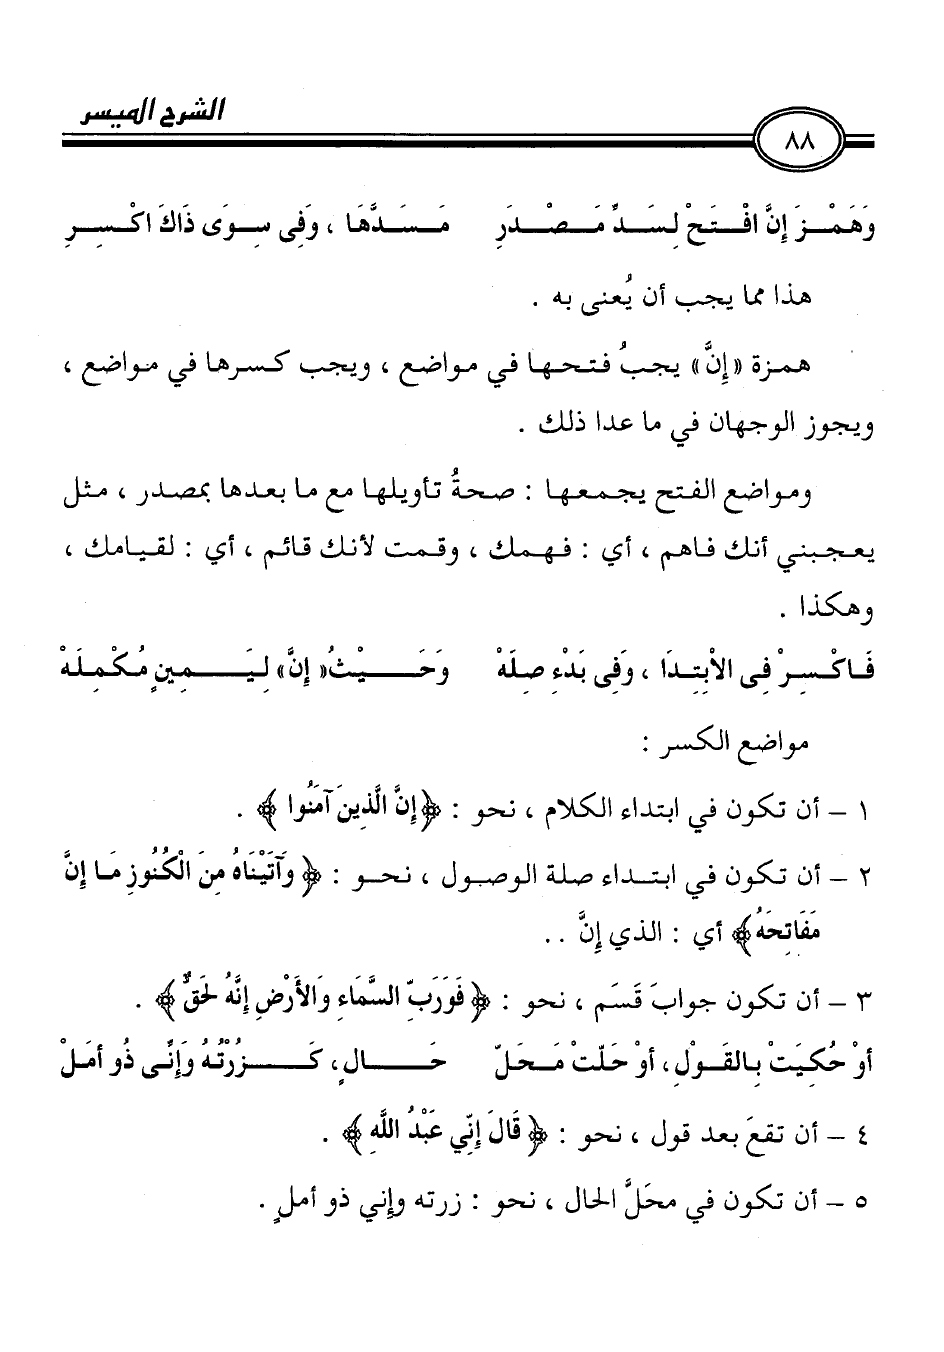 الشرح الميسر
٨٨
وَهَمْـزَ إِنَّ افْتَـحْ لِسَـدِّ مَـصْـدَرِ مَـسَـدَّهَا ، وَفِي سِـوَى ذَاكَ اكْـسِـرِ
هذا مما يجب أن يُعنى به .
همزة «إِنَّ» يجبُ فتحها في مواضع ، ويجب كسرها في مواضع ،
ويجوز الوجهان في ما عدا ذلك .
ومواضع الفتح يجمعها : صحةُ تأويلها مع ما بعدها بمصدر ، مثل
يعجبني أنك فاهم ، أي : فهمك ، وقمت لأنك قائم ، أي : لقيامك ،
وهكذا .
فَـاكْـسِـرْ فِي الاْبْتِـدَا ، وَفِي بَدْءِ صِلَهْ وَحَـيْـثُ «إِنَّ» لِيَـمِينٍ مُكْـمِلَهْ
مواضع الكسر :
١ – أن تكون في ابتداء الكلام ، نحو : ﴿إِنَّ الَّذِينَ آمَنُوا ﴾ .
٢ – أن تكون في ابتداء صلة الوصول ، نحو : ﴿ وَآتَيْنَاهُ مِنَ الْكُنُوزِ مَا إِنَّ
مَفَاتِحَهُ ﴾ أي : الذي إِنَّ ..
٣ – أن تكون جوابَ قَسَم ، نحو : ﴿ فَوَرَبِّ السَّمَاءِ وَالأَرْضِ إِنَّهُ لَحَقٌّ ﴾ .
أَوْ حُكِيَتْ بِالقَـوْلِ ، أَوْ حَلَّتْ مَـحَلّْ حَـالٍ ، كَـزُرْتُهُ وَإِنِّـي ذُو أَمَلْ
٤ – أن تقعَ بعد قول ، نحو : ﴿ قَالَ إِنِّي عَبْدُ اللَّهِ ﴾ .
٥ – أن تكون في محَلِّ الحال ، نحو : زرته وإِني ذو أملٍ .